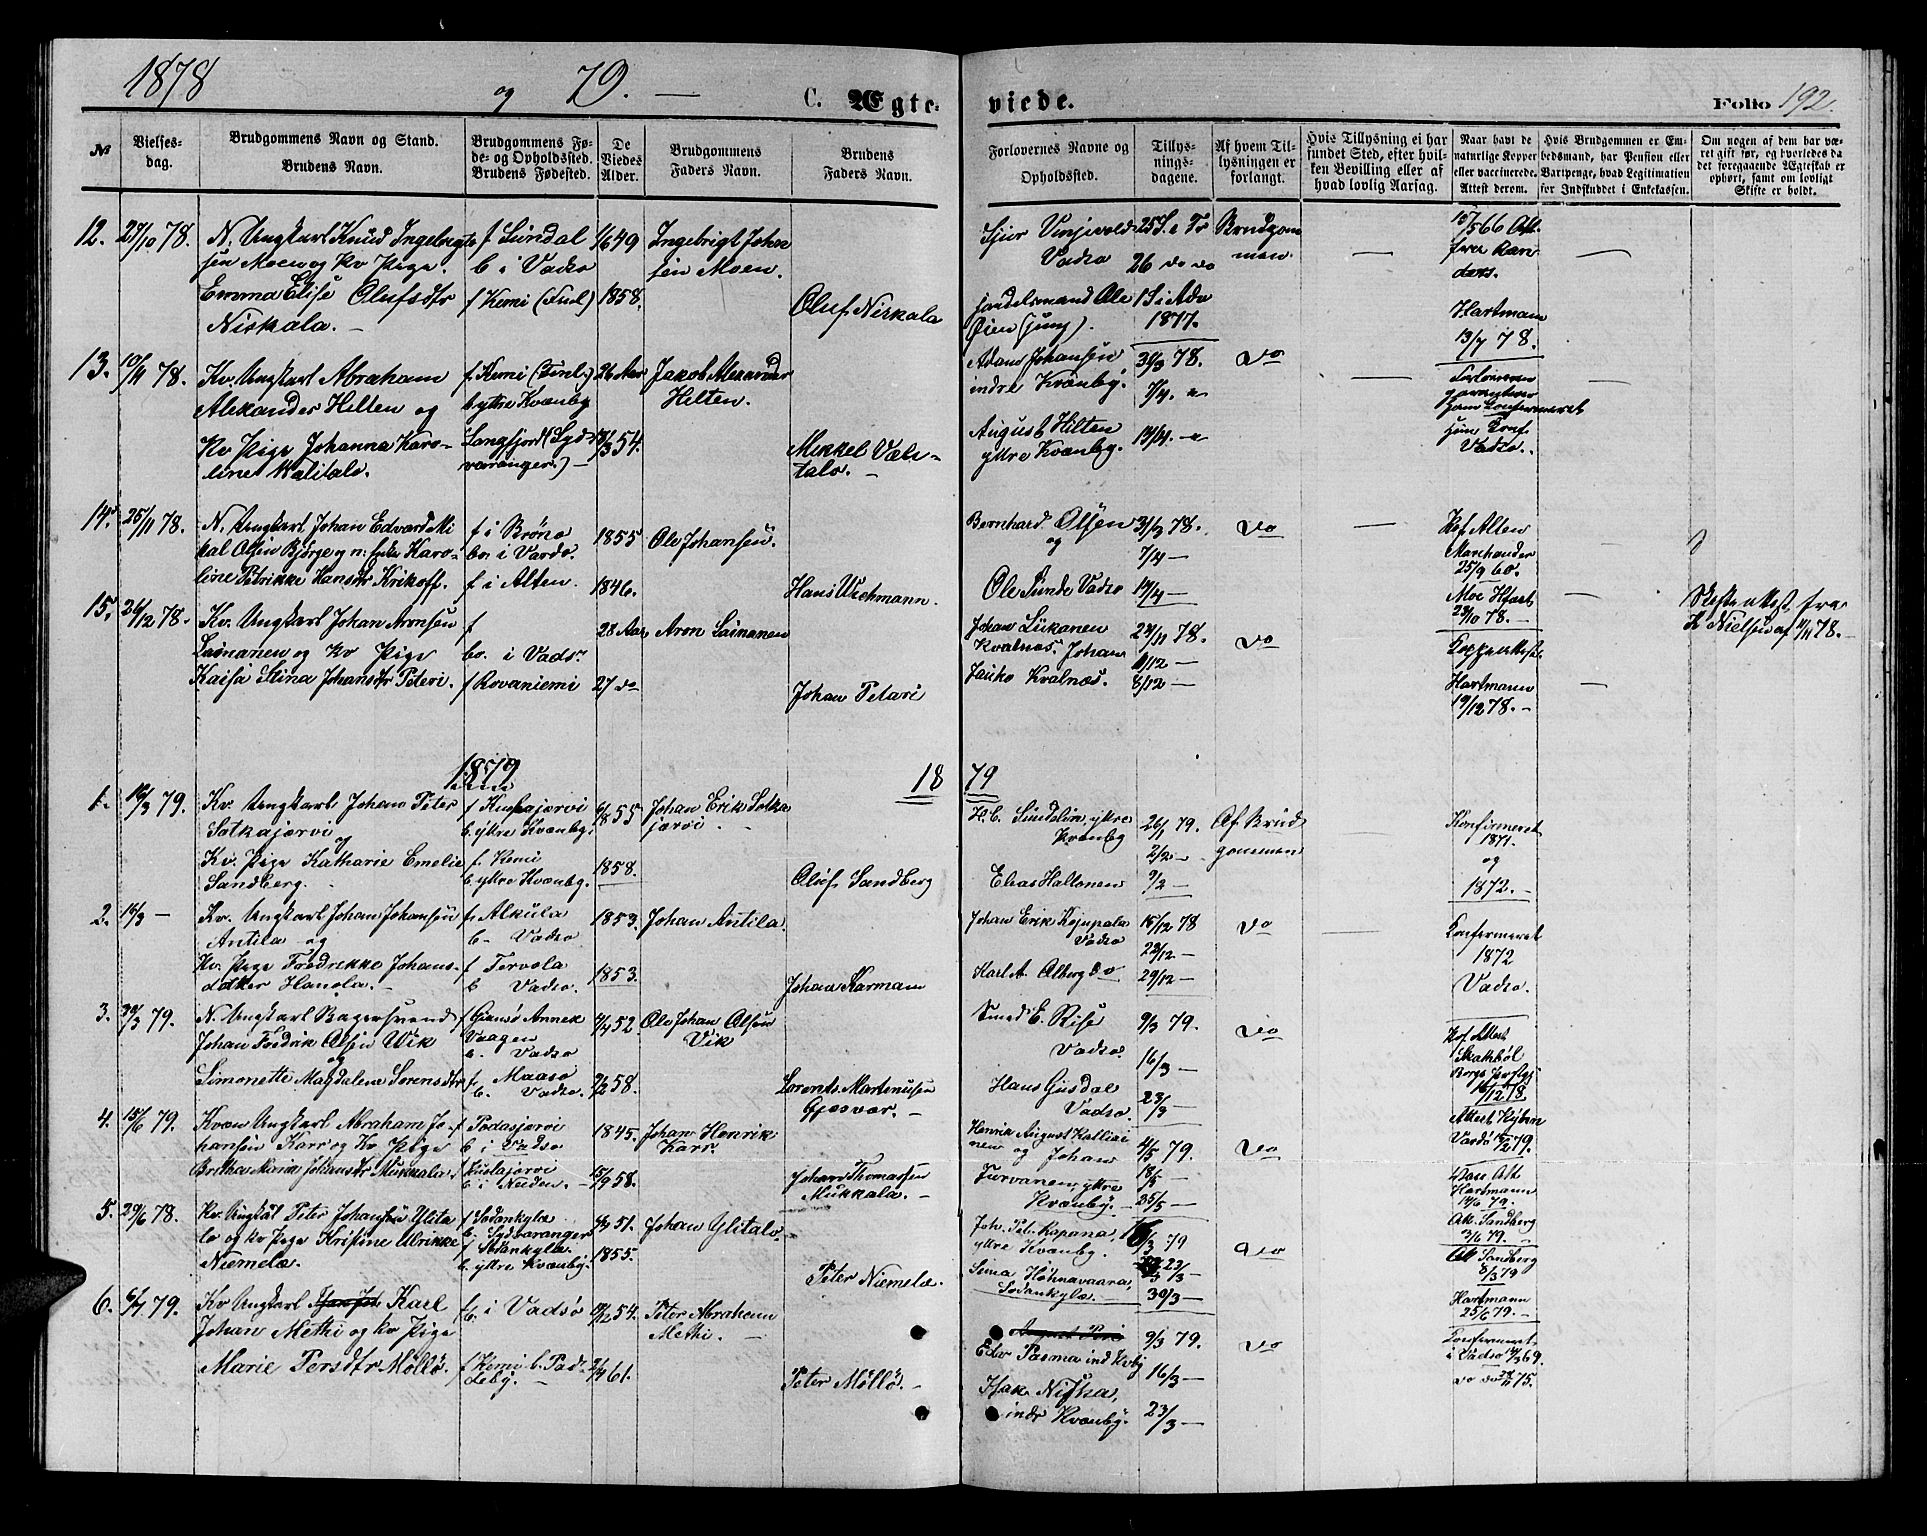 1878 og 79. — C. Ægte-
viede.
Folio 192.
№
Vielses-
dag.
Brudgommens Navn og Stand.
Brudens Navn.
Brudgommens Fø-
de- og Opholdssted.
Brudens Fødested.
De
Viedes
Alder.
Brudgommens
Faders Navn.
Brudens
Faders Navn.
Forlovernes Navne og
Opholdssted.
Tillys-
nings-
dagene.
Af hvem Til-
lysningen er
forlangt.
Hvis Tillysning ei har
fundet Sted, efter hvil-
ken Bevilling eller af
hvad lovlig Aarsag.
Naar havt de
naturlige Kopper
eller vaccinerede.
Attest derom.
Hvis Brudgommen er Em-
bedsmand, har Pension eller
Vartpenge, hvad Legitimation
for Indskudet i Enkekassen.
Om nogen af dem har væ-
ret gift før, og hvorledes da
det foregaaende Ægteskab er
ophørt, samt om lovligt
Skifte er holdt.
12. 27/10 78. N. Ungkarl Knud Ingebrigt-
sen Moen og Kv. Pige
Emma Elise Olufsdtr
Niskala. —
f Sundal
b i Vadsø
f Kemi (Finl)
1/6 49
1858.
Ingebrigt Johan
sen Moen.
Oluf Niskala
Vinjevold
Vadsø
Handelsmand Ole
Øien (jung).
25 S. e Tr
26 do do
1 S i Adv
1877.
Brudgom
men
—
10/5 66 Att.
fra
Hartmann
13/7 78.
—
13. 10/11 78. Kv. Ungkarl Abraham
Alexander Hilten og
Kv Pige Johanna Karo-
line Walitalo.
f. Kemi (Finl.)
b ytre Kvænby
Langfjord (Syd-
varanger.) —
26 Aar
18/3 54.
Jakob Alexander
Hilten.
Mikkel Væli-
talo. —
Adam Johansen,
indre Kvænby.
August Hilten
ytre Kvænby.
31/3 78.
7/4. "
14/4. "
Do
—
Forloverne
garanterer
ham Confirmeret
hun Conf.
Vadsø.
—
14. 25/11 78. N. Ungkarl Johan Edvard Mi
kal Olsen Bjørge og n: Karo-
line Petrikke Hansdtr Krikoff.
f i Brønø
bo. i Vardø.
f i Alten.
1855
1846.
Ole Johansen.
Hans Wichmann.
Bernhard Olsen
og
Ole Sunde Vadsø
31/3 78.
7/4 —
14/4 —
Do
—
Ref. Alten
25/9 60.
Moe
23/10 78. —
Skifteattest fra
K Nielsen af 11/11 78. —
15. 26/12 78. Kv. Ungkarl Johan Aronsen
Lainanen og Kv Pige
Kaisa Stina Johansdtr Peteri.
f
bo. i Vadsø
f Rovaniemi
28 Aar
27 do
Aron Lainanen
Johan Petari
Johan Liikanen
Kvalnæs. Johan
Kvalnæs.
24/11 78.
1/12 —
8/12 —
Do
Koppeattest
Hartmann
19/12 78. —
—
1879
18 79
1. 16/3 79. Kv. Ungkarl Johan Peter
Sotkajærvi og
Kv. Pige Katharie Emelie
Sandberg.
b. ytre Kvænby.
f. Kemi
b ytre Kvænby.
6/8 55
1858.
Johan Erik Sotka
jærvi.
Oluf Sandberg
H. C. Sundelin, ytre
Kvænby
Elias Haltonen
26/1 79.
2/2 —
9/2 —
Af Brud
gommen
Konfirmeret
1871.
og
1872. —
2. 16/3 — Kv. Ungkarl Johan Johansen
Antila og
Kv. Pige Fredrikke Johans-
datter Hanola. —
f. Alkula
b. Vadsø
f Tervola
b Vadsø.
1853.
1853.
Johan Antila.
Johan Karman
Johan Erik Kojupala
Vadsø
Karl A. Alberg do
15/12 78
22/12 —
29/12 —
Do
—
Confirmeret
1872
Vadsø.
3. 30/3 79. N. Ungkarl Bagersvend
Johan Fredrik Olsen Wik
og
Simonette Magdalene Sørensdtr
Vaagen
b. Vadsø
f. Maasø
b. Vadsø.
4/4 52
2/2 58.
Ole Johan Olsen
Vik
Lorents Martinusen
Gjæsvær. —
Smed E. Rise
Vadsø.
Hans Gusdal
Vadsø.
9/3 79.
16/3 —
23/3 —
Do
Kof. Attest
Skatbøl
16/12 78.
4. 15/6 79. Kvæn Ungkarl Abraham Jo-
hansen Karr og Kv. Pige
Britha Maria Johansdtr Mukkala.
f Podasjærvi
b i Vadsø
b i Neiden. —
1845.
15/9 58.
Johan Henrik
Karr.
Johan Thomassen
Mukkala. —
Henrik August Kalliai
nen og Johan
Turvanen, ytre
Kvænby. —
4/5 79.
18/5 —
25/5 —
Do
Attest
Vardø 12/2 79.
Hartmann
14/6 79.
5. 29/6 78. Kv. Ungkarl Peter Johansen Ylita
lo og Kv Pige Kristine Ulrikke
Niemelæ.
f Sodankylæ
b. Sydvaranger
f Sodankylæ
b. ytre Kvænby.
51.
1855.
Johan Ylitalo.
Peter Niemelæ.
Joh. Pet. Kapana,
ytre Kvænby.
Høhnavaara,
Sodankylæ. —
16/3 79
23/3 —
30/3 —
Do
Att. Sandberg
13/6 79. —
Att Sandberg
8/3 79
6. 6/7 79. Kv Ungkarl Karl
Johan Methi og Kv Pige
Marie Persdtr Møllø.
f. b. i Vadsø
f Kemi b. Pads-
eby. —
54.
61.
Peter Abraham
Methi. —
Peter Møllø. —
Edv Pasma ind Kvby
Isak Niska,
indr Kvænby.
9/3 79.
16/3 —
23/3 —
Do
Hartmann
25/6 79. —
Confirmeret
i Vadsø 69.
do do 75.